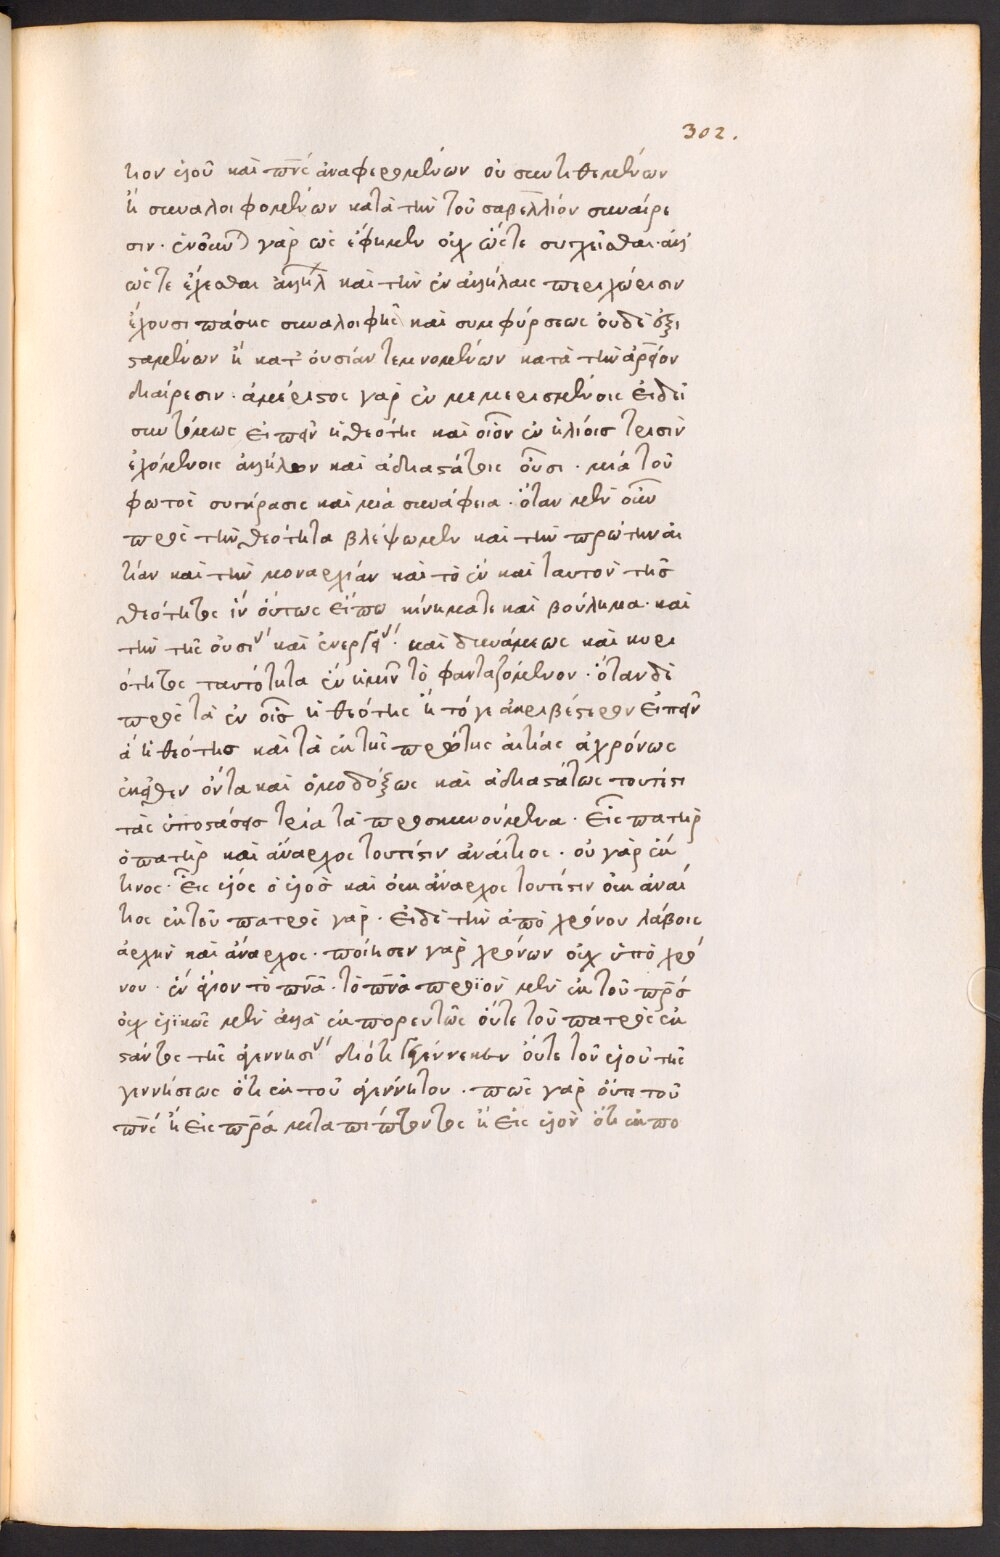 302.
τιον υἱοῦ καὶ πν̅ς ἀναφερομένων οὐ συντιθεμένων
ἢ συναλοιφομένων κατὰ τὴν τοῦ σαβελλίου συναίρε
σιν · ἑνοῦν) γὰρ ὡς ἔφημεν οὐχ ὥστε συγχεῖσθαι · ἀλλ'
ὥστε ἔχεσθαι ἀλλήλ καὶ τὴν ἐν ἀλλήλαις περιχώρησιν
ἔχουσι πάσης συναλοιφῆς καὶ συμφύρσεως οὐδὲ ἐξι
σταμένων ἢ κατ' οὐσίαν τεμνομένων κατὰ τὴν ἀρείου
διαίρεσιν · ἀμέριστος γὰρ ἐν μεμερισμένοις εἰ δεῖ
συντόμως εἰπεῖν ἡ θεότης καὶ οἷον ἐν ἡλίοις τρισὶν
ἐχομένοις ἀλλήλων καὶ ἀδιαστάτοις οὖσι · μία τοῦ
φωτὸς σύγκρασις καὶ μία συνάφεια · ὅταν μὲν οὖν
πρὸς τὴν θεότητα βλέψωμεν καὶ τὴν πρώτην αἰ
τίαν καὶ τὴν μοναρχίαν καὶ τὸ ἓν καὶ ταυτὸν τῆς
θεότητος ἵν' οὕτως εἴπω κίνημα τε καὶ βούλημα · καὶ
τὴν τῆς οὐσι καὶ ἐνεργεί · καὶ δυνάμεως καὶ κυρι
ότητος ταυτότητα ἓν ἡμῖν τὸ φανταζόμενον · ὅταν δὲ
πρὸς τὰ ἐν οἷς ἡ θεότης ἢ τό γε ἀκριβέστερον εἰπεῖν
ἃ ἡ θεότης καὶ τὰ ἐκ τῆς πρώτης αἰτίας ἀχρόνως
ἐκεῖθεν ὄντα καὶ ὁμοδόξως καὶ ἀδιαστάτως τουτέστι
τὰς ὑποστάσεις τρία τὰ προσκυνούμενα · εἷς πατὴρ
ὁ πατὴρ καὶ ἄναρχος τουτέστιν ἀναίτιος · οὐ γὰρ ἔκ
τινος · εἷς υἱός ὁ υἱὸς καὶ οὐκ ἄναρχος τουτέστιν οὐκ ἀναί
τιος ἐκ τοῦ πατρὸς γὰρ · εἰ δὲ τὴν ἀπὸ χρόνου λάβοις
ἀρχὴν καὶ ἄναρχος · ποίησεν γὰρ χρόνων οὐχ ὑπὸ χρό
νον · ἓν ἅγιον τὸ πν̅α · τὸ πν̅α προϊὸν μὲν ἐκ τοῦ πρ̅ς
οὐχ υἱϊκῶς μὲν ἀλλὰ ἐκπορευτῶς οὔτε τοῦ πατρὸς ἐκ
στάντος τῆς ἀγεννησί διότι γεγέννηκεν οὔτε τοῦ υἱοῦ τῆς
γεννήσεως ὅτι ἐκ τοῦ ἀγεννήτου · πῶς γὰρ οὔτε τοῦ
πν̅ς ἢ εἰς πρ̅α μεταπίπτοντος ἢ εἰς υἱὸν ὅτι ἐκπο